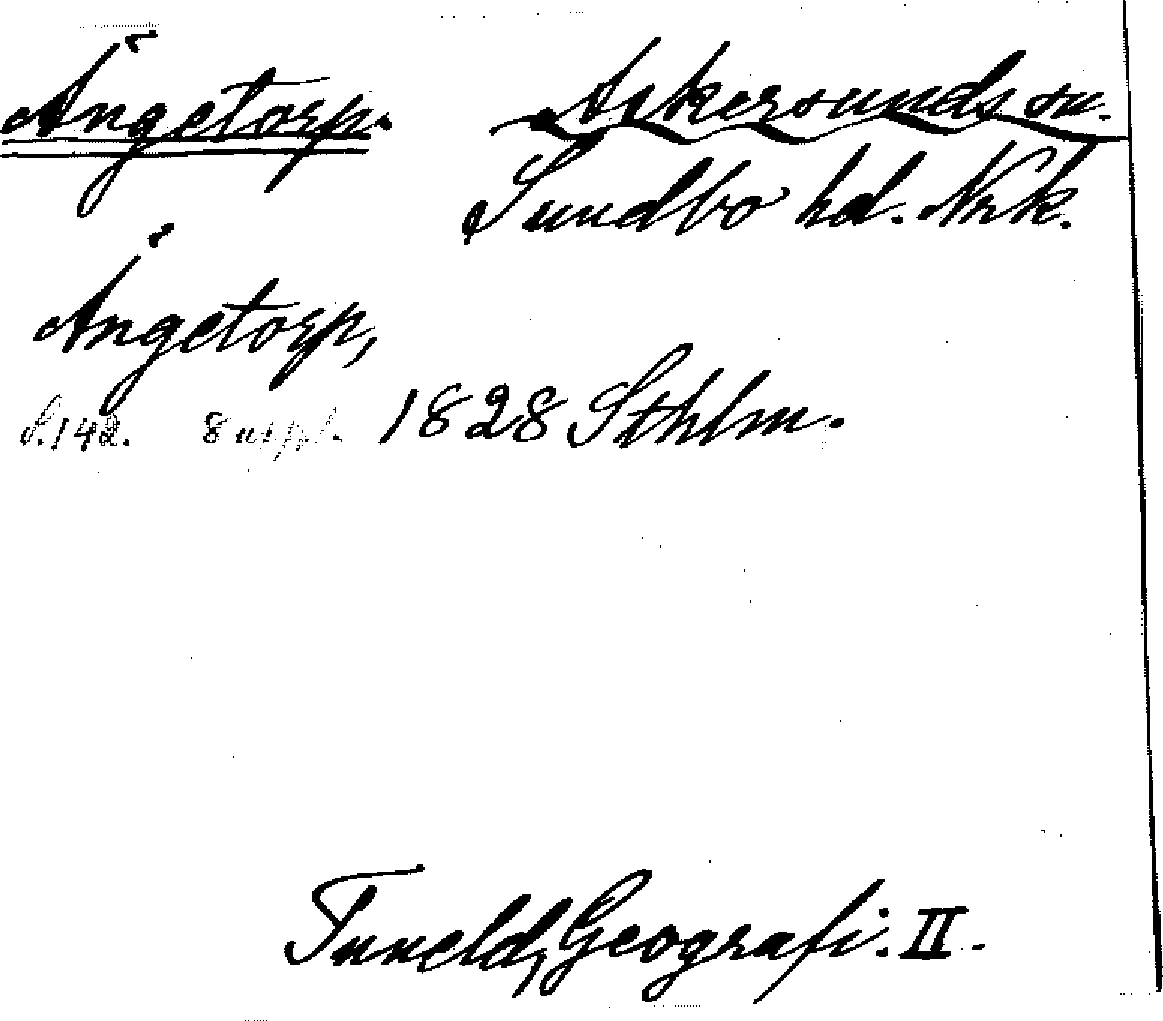 Ångetorp. Askersunds sn.
Sundbo hd. Nrk.
Ångetorp,
S. 142. 8 uppl. 1828 Sthlm.
Tuneld, Geografi. II.